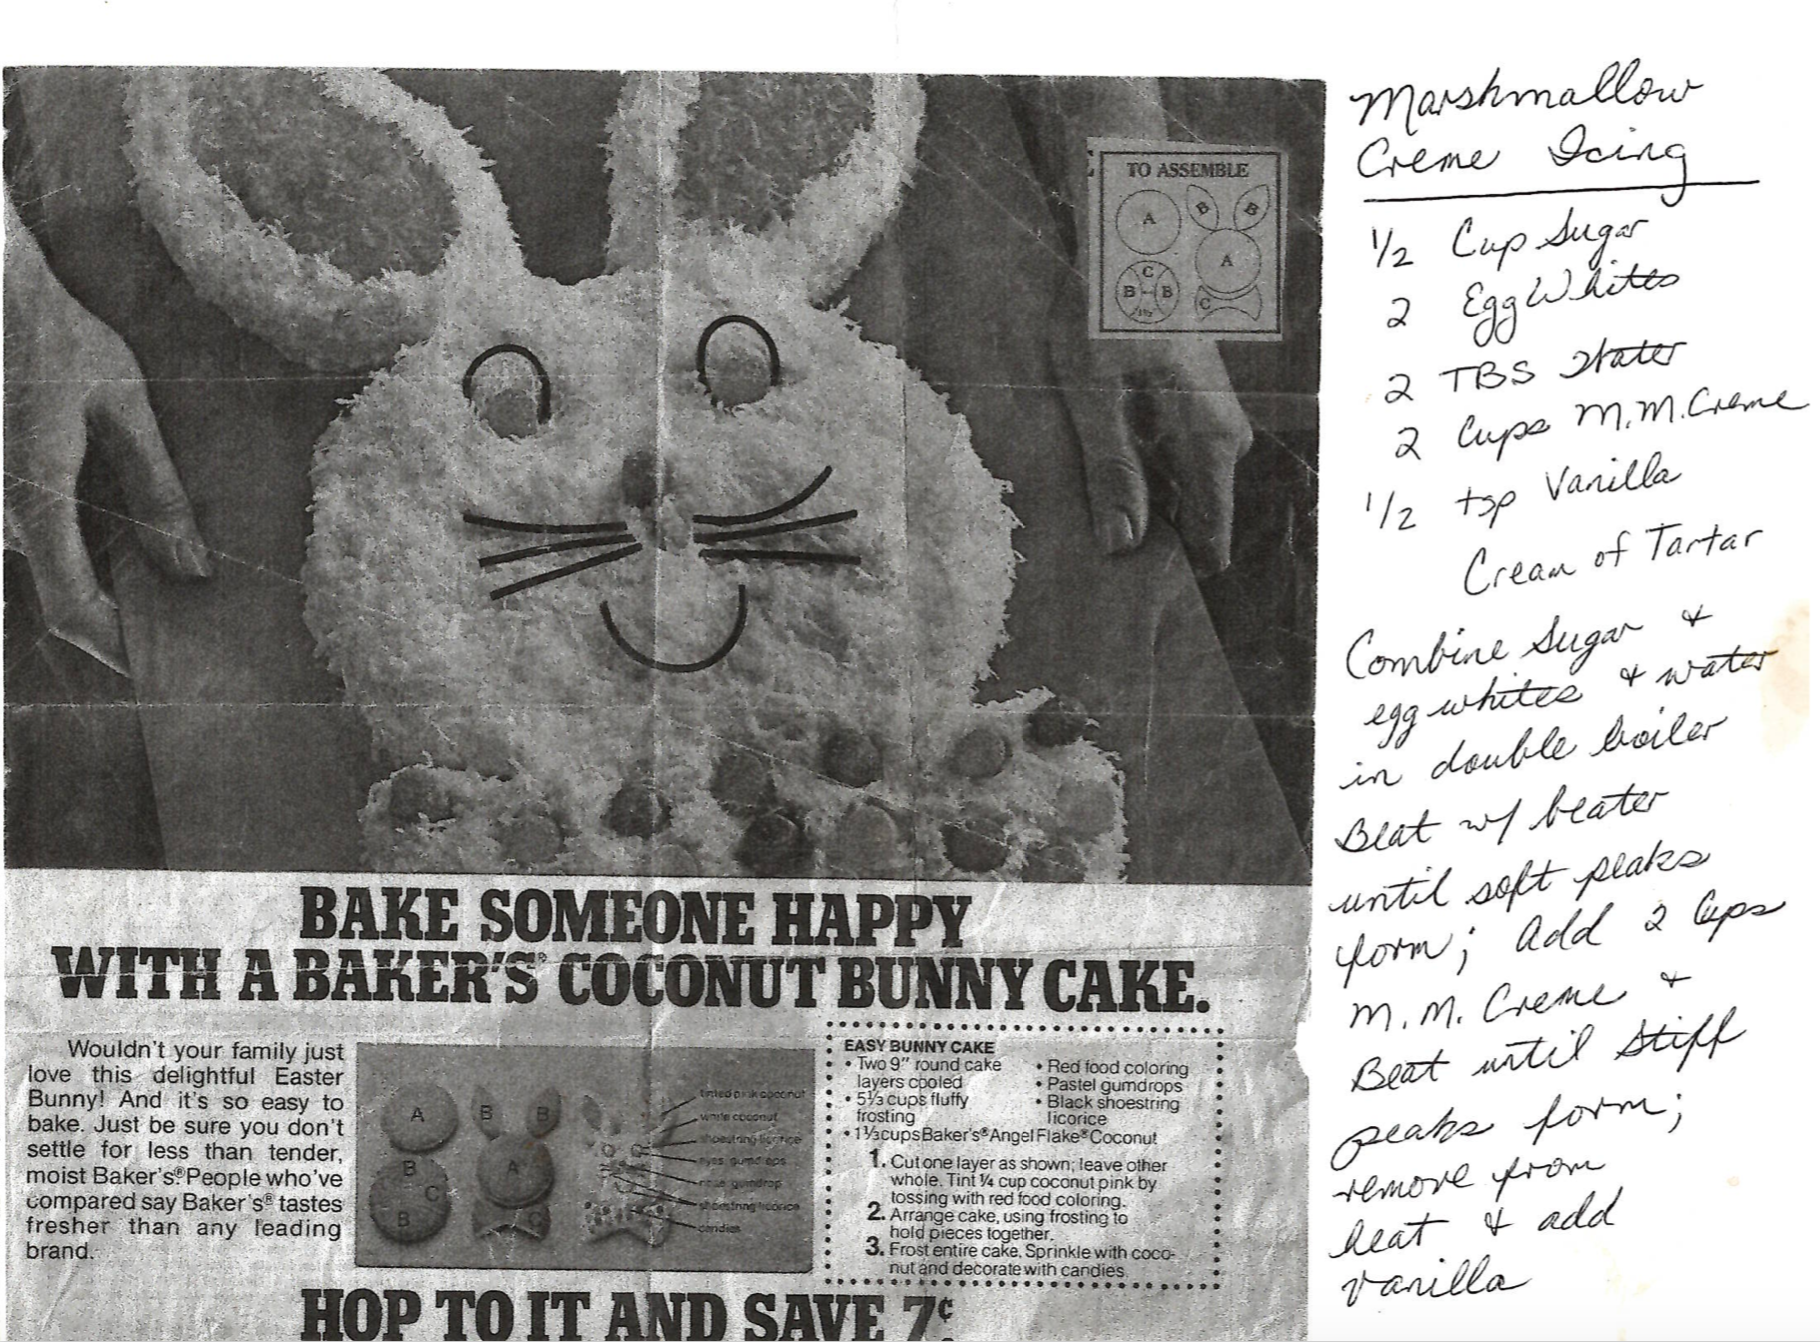 Marshmallow
Creme Icing
1/2 Cup Sugar
2 Egg Whites
2 TBS Water
2 Cups M.M. Creme
1/2 tsp Vanilla
Cream of Tartar
Combine Sugar &
egg whites & water
in double boiler
Beat w/ beater
until soft peaks
form; Add 2 Cups
M.M. Creme &
Beat until stiff
peaks form;
remove from
heat & add
vanilla
TO ASSEMBLE
A
B
B
A
C
B
B
C
BAKE SOMEONE HAPPY
WITH A BAKER'S® COCONUT BUNNY CAKE.
Wouldn't your family just
love this delightful Easter
Bunny! And it's so easy to
bake. Just be sure you don't
settle for less than tender,
moist Baker's®. People who've
compared say Baker's® tastes
fresher than any leading
brand.
A
B
B
A
B
C
B
C
tinted pink coconut
white coconut
shoestring licorice
eyes, gumdrops
nose, gumdrop
shoestring licorice
candies
EASY BUNNY CAKE
• Two 9" round cake
layers cooled
• 5⅓ cups fluffy
frosting
• 1⅓ cups Baker's® Angel Flake® Coconut
• Red food coloring
• Pastel gumdrops
• Black shoestring
licorice
1. Cut one layer as shown; leave other
whole. Tint ¼ cup coconut pink by
tossing with red food coloring.
2. Arrange cake, using frosting to
hold pieces together.
3. Frost entire cake. Sprinkle with coco-
nut and decorate with candies.
HOP TO IT AND SAVE 7¢.